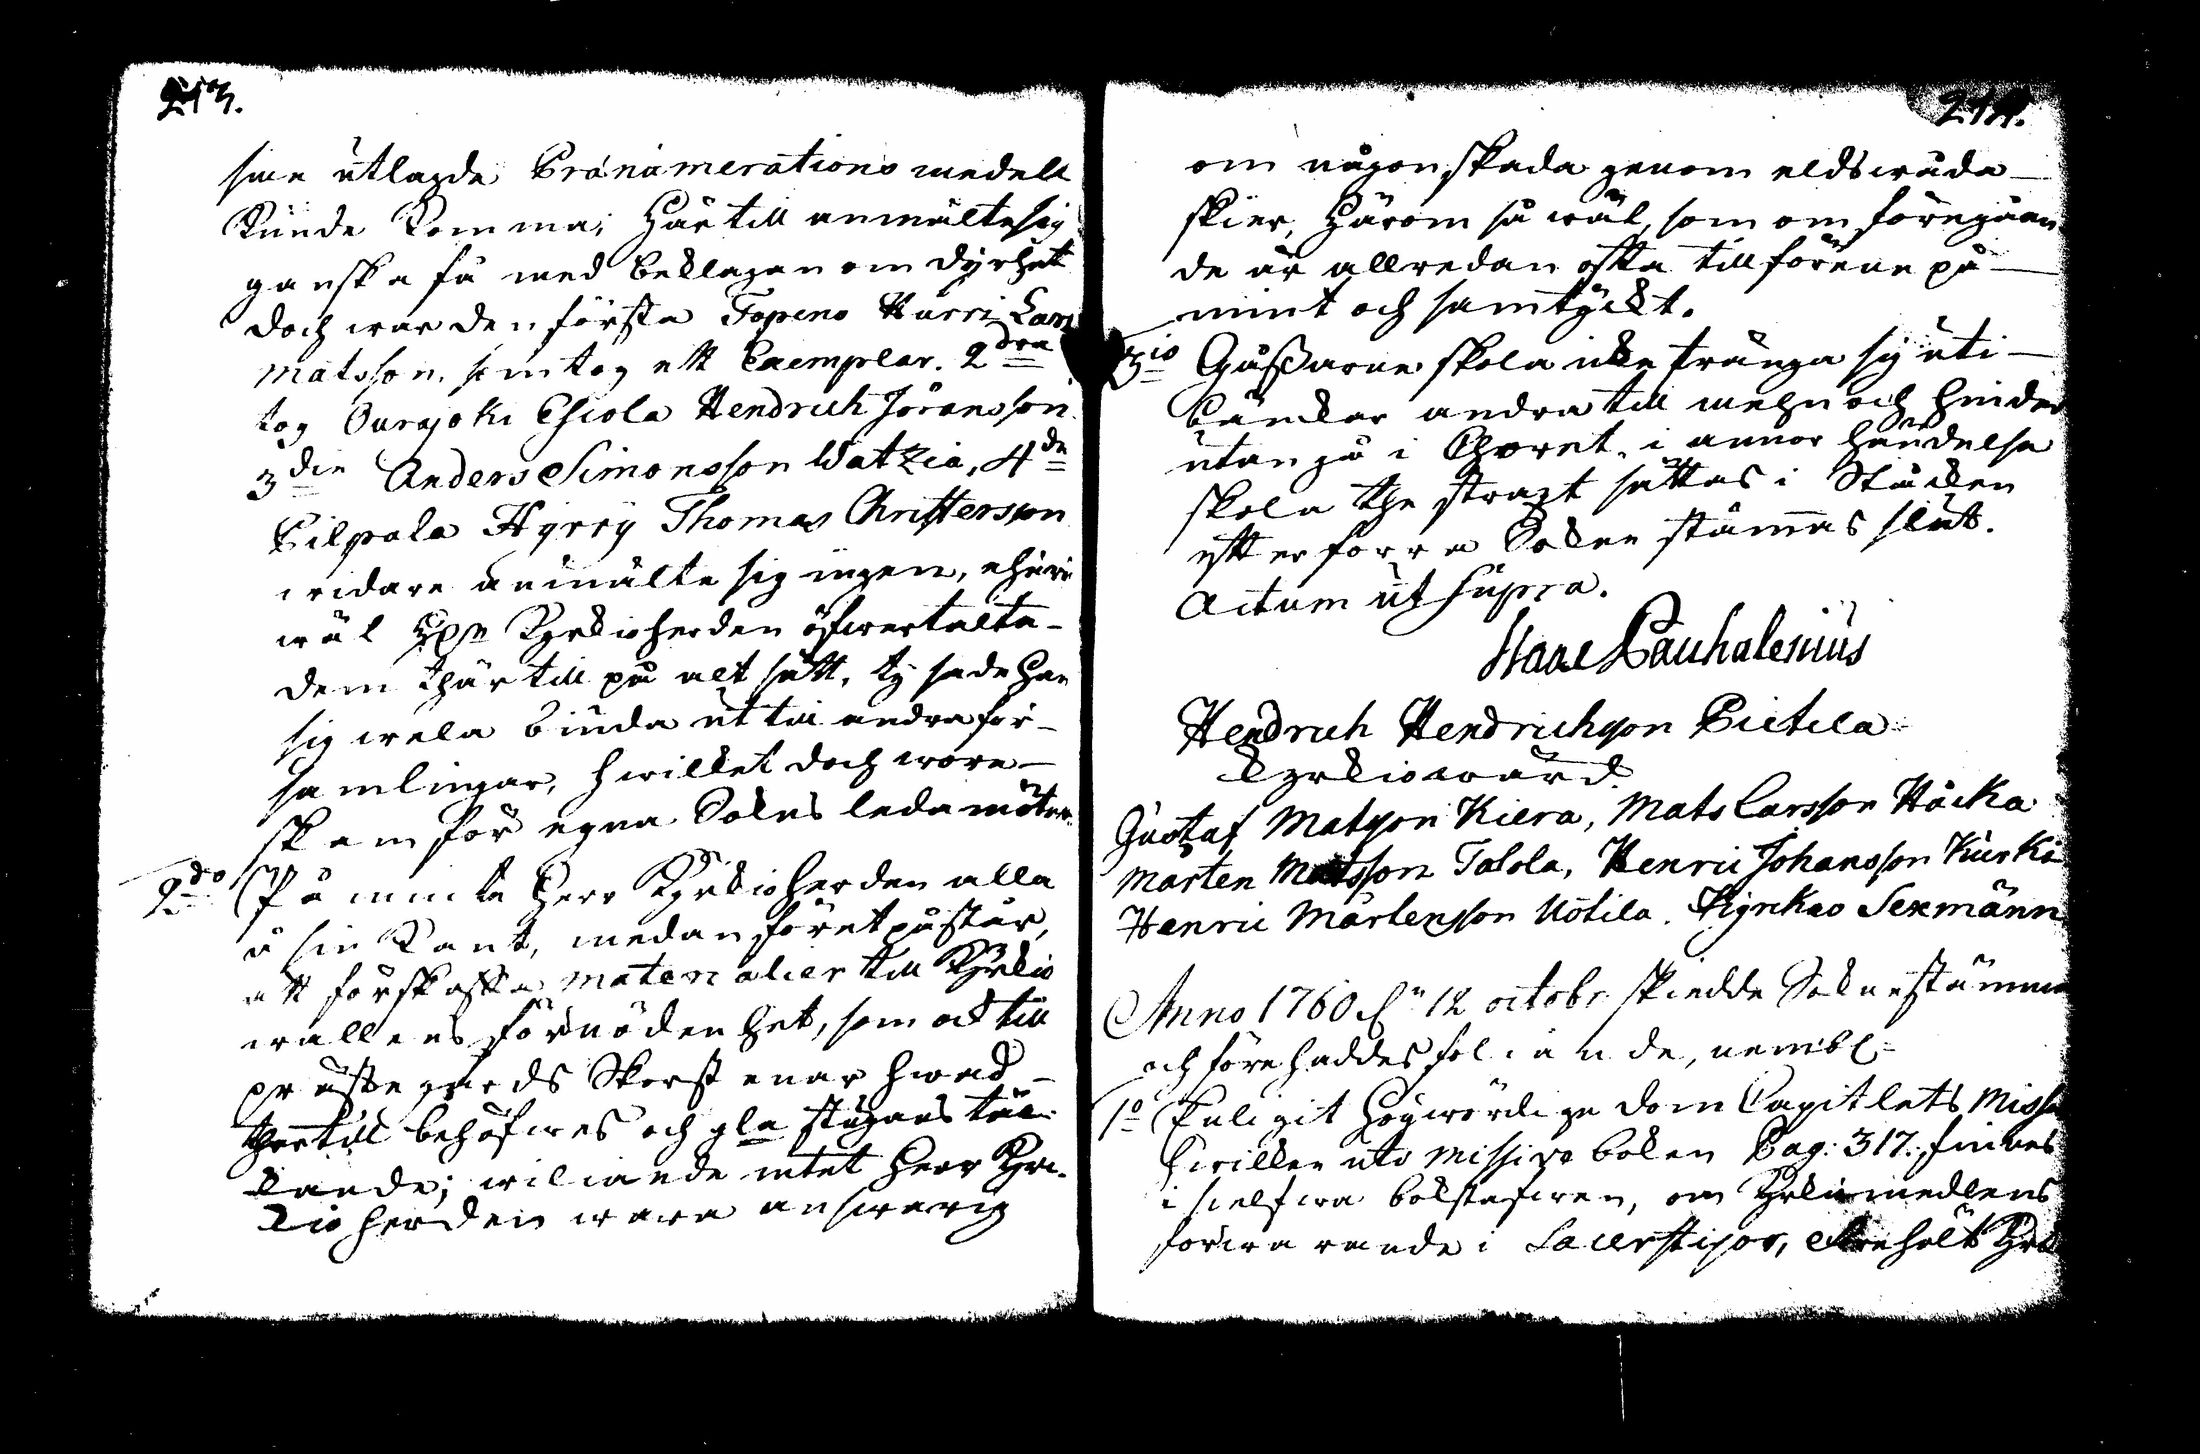 213.
sine utlagde Pränumerations medell
Kunde Komma; Här till anmälte sig
ganska få med beklagan om dyrhet
doch war den första Topeno Hurri Lars
Matsson, som tog ett Exemplar. 2dra
tog Ourajoki Esiola Hendrich Jöransson
3die Anders Simonsson Watzia, 4de
Pilpala Hyrry Thomas Christersson
widare anmälte sig ingen, ehuru
wäl Kyrkioherden öfwertalte
dem thär till på alt sätt, ty sade han
sig wela biuda ut till andra för-
samlingar, hwilket doch wore
skam för egna Sokns ledamöter.
2do Påminte Herr Kyrkioherden alla
å sin Kant, medan föret påstår,
att förskaffa materialier till Kyrkio
wallens förnödenhet, som ock till
prästegårds Skorstenar hwad
thertill behöfwes och gla stugans täc-
kande; wiliande intet Herr Kyr-
kioherden wara answarig
214.
om någon skada genom eldswåda
skier, Härom så wäl, som om föregåen-
de är allredan offta tillförene på-
mint och samtyckt.
3io Gåssarne skola icke tränga sig uti
bänckar andra till mehn och hinder
utan gå i Choret, i annor händelse
skola the straxt sättas i Stocken
efter förra Sokne stämmas slut.
Actum ut supra.
Isaac Pauhalenius
Hendrich Hendrichson Pietila
Kyrkiowärd.
Gustaf Matsson Kiera, Mats Larsson Häcka
Mårten Matsson Talola, Henric Johansson Kurki
Henric Mårtensson Uotila. Kyrckio Sexmänn
Anno 1760 d. 12 octobr. skiedde Soknestämma
och förehaddes föliande, nembl.
1o Enligit Högwördige Dom Capitlets Missiv
hwilken uti Missive boken Pag: 317. finnes
i sielfwa bokstafwen, om Kyrkiomedlens
förwarande i Sacerstigor, Kyrk